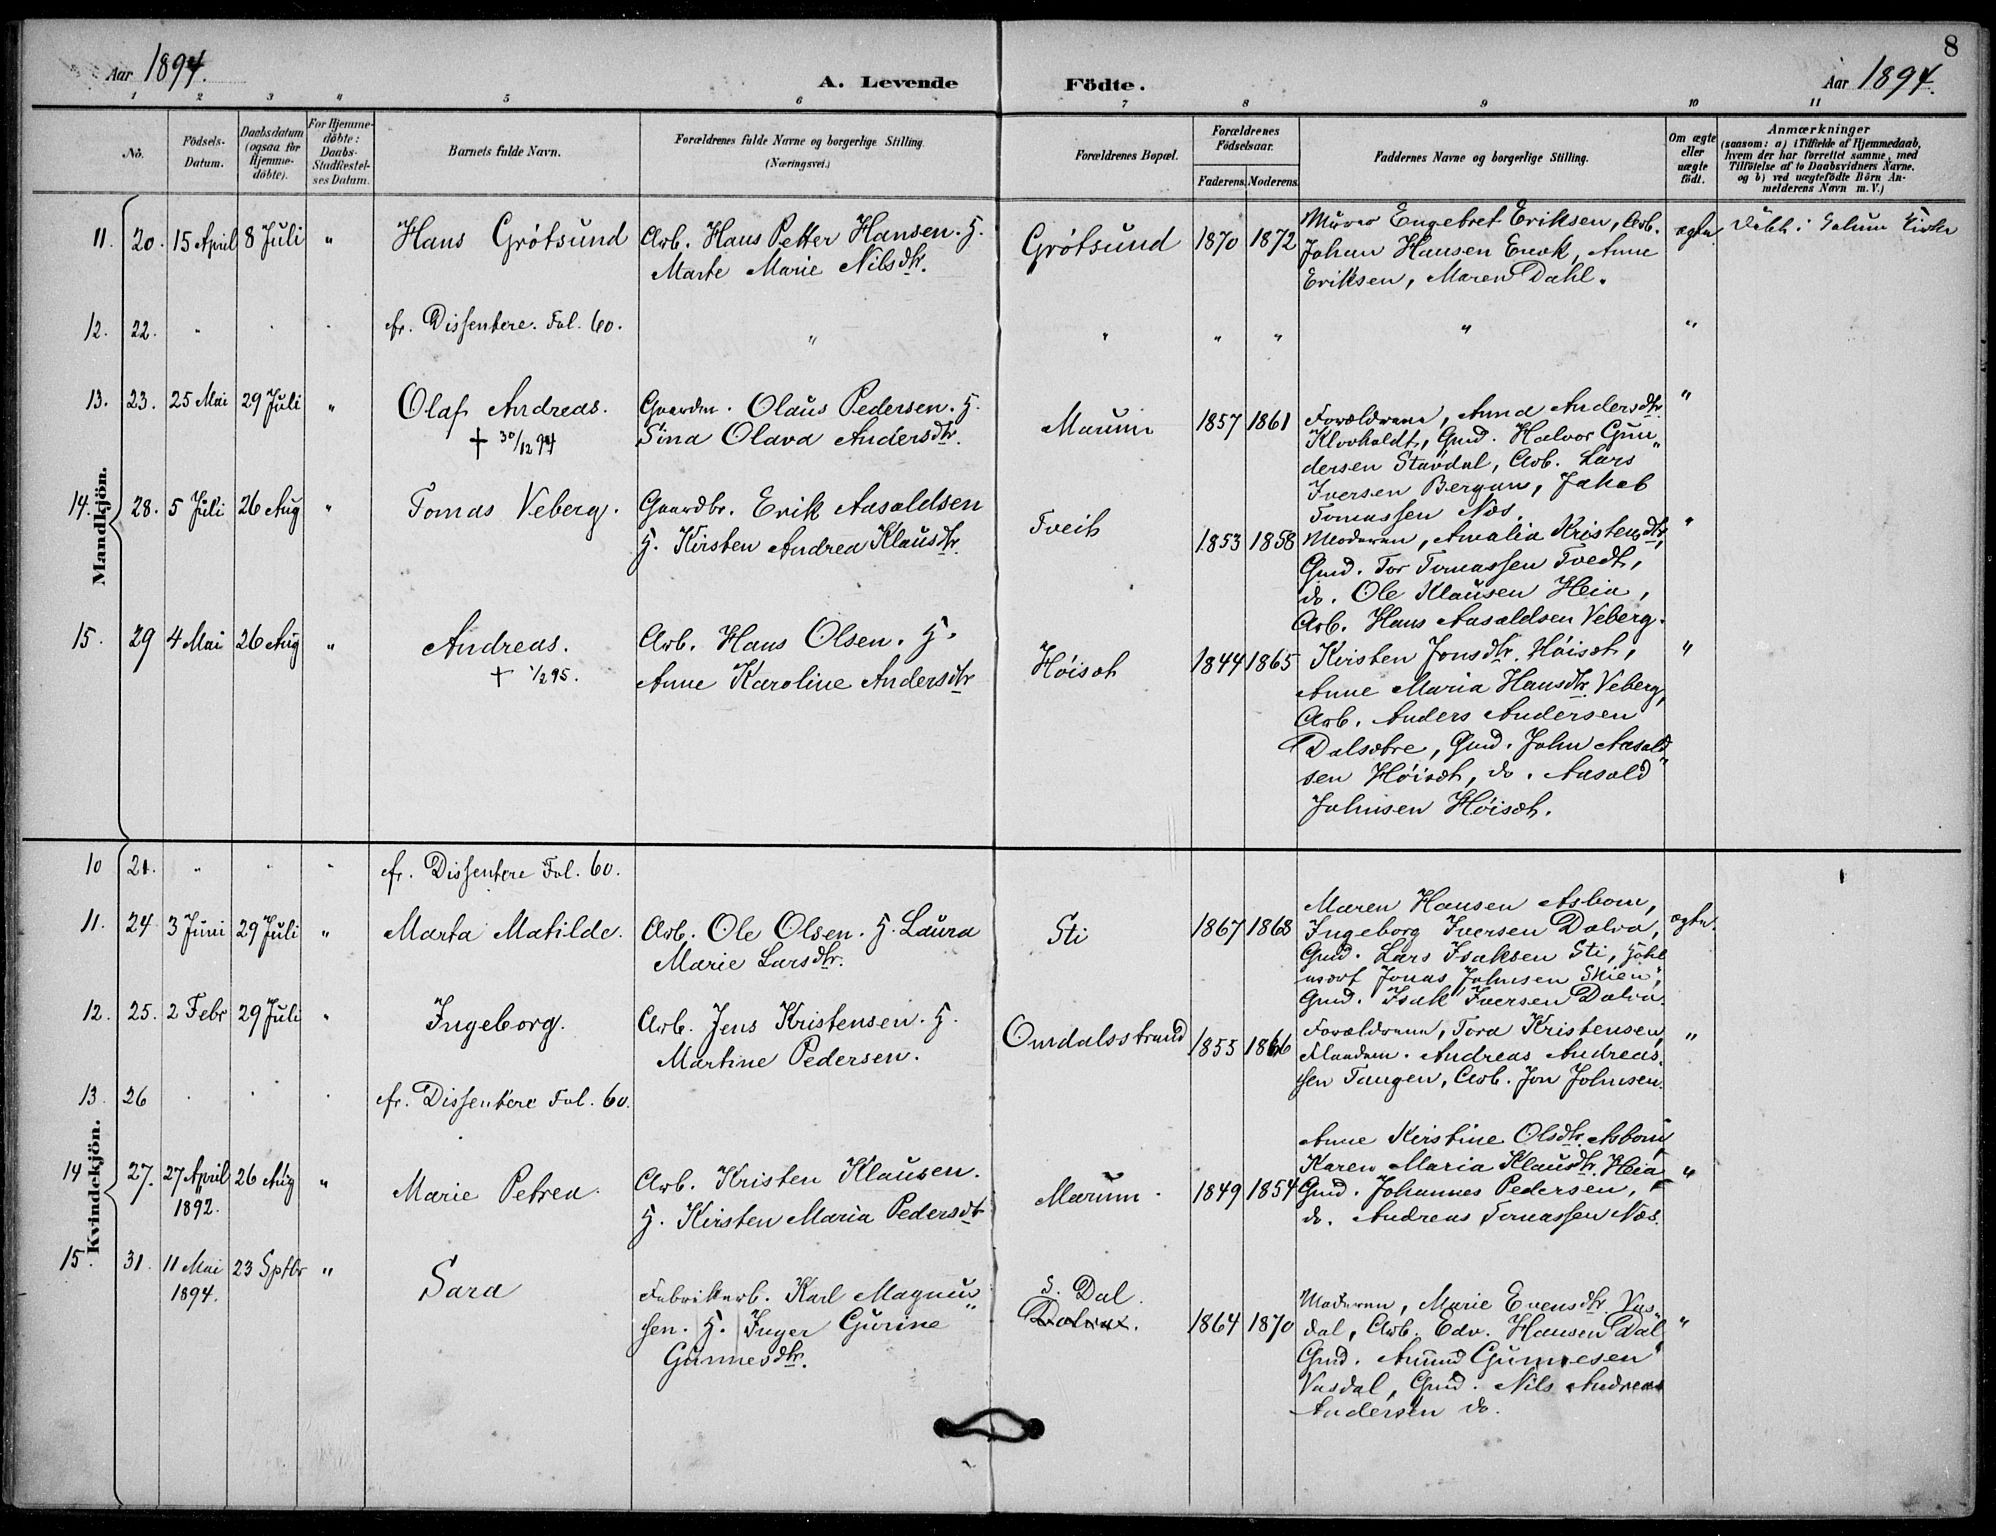 8
Aar 1894. A. Levende Födte. Aar 1894.
1 2 3 " 5 6 7 8 9 10 11
No.
Födsels-
Datum.
Daabsdatum
(ogsaa for
Hjemme-
döbte).
For Hjemme-
döbte:
Daabs-
Stadfæstel-
ses Datum.
Barnets fulde Navn.
Forældrenes fulde Navne og borgerlige Stilling.
(Næringsvei.)
Forældrenes Bopæl.
Forældrenes
Födselsaar.
Faderens. Moderens.
Faddernes Navne og borgerlige Stilling.
Om ægte
eller
uægte
födt.
Anmærkninger
(saasom: a) i Tilfælde af Hjemmedaab,
hvem der har forrettet samme, med
Tilföielse af to Daabsvidners Navne,
og b) ved uægtefödte Börn An-
melderens Navn m. V.)
Mandkjön.
11. 20. 15 April 8 Juli " Hans Grótsund
Arb. Hans Petter Hansen. H.
Marte Marie Nilsdtr.
Grótsund 1870 1872
Murer Engebret Eriksen, Arb.
Johan Hansen Enok, Anne
Eriksen, Maren Dahl.
ægte
Døbt i Solum Kirke
12. 22. " " " fr. Dissentere. Fol. 60. " " " " " "
13. 23. 25 Mai 29 Juli " Olaf Andreas.
† 30/12 94
Gaardm. Olaus Pedersen. H.
Sina Olava Andersdtr.
Marum 1857 1861
Forældrene, Anna Andersdtr.
Klovholdt, Gmd. Halvor Gun"
dersen Stavdal, Arb. Lars
Iversen Bergan, Jakob
Tomassen Næs.
"
14. 28. 5 Juli 26 Aug " Tomas Veberg.
Gaardbr. Erik Aasoldsen
H. Kirsten Andrea Klausdtr.
Tveit 1853 1858
Moderen, Amalia Kristensdtr,
Gmd. Tor Tomassen Tvedt,
do. Ole Klausen Heia,
Arb. Hans Aasoldsen Veberg.
"
15. 29 4 Mai 26 Aug " Andreas.
† 1/2 95.
Arb. Hans Olsen. H.
Anne Karoline Andersdtr
Høisæt 1844 1865
Kirsten Jonsdtr. Høisæt,
Anne Maria Hansdtr. Veberg,
Arb. Anders Andersen
Dalsætre, Gmd. John Aasold
sen Høisæt, do. Aasold
Johnsen Høisæt.
"
Kvindekjön.
10 21. " " " fr. Dissentere Fol. 60.
11. 24 3 Juni 29 Juli " Marta Matilde.
Arb. Ole Olsen. H. Laura
Marie Larsdtr.
Sti 1867 1868
Maren Hansen Asbom,
Ingeborg Iversen Dalva,
Gmd. Lars Isaksen Sti,
Jonas Johnsen Skien,
Gmd. Isak Iversen Dalva.
ægte.
12. 25. 2 Febr 29 Juli " Ingeborg.
Arb. Jens Kristensen. H.
Martine Pedersen.
Omdalsstrand 1855 1866
Forældrene, Tora Kristensen,
Andreas Andreas
sen Tangen, Arb. Jon Johnsen.
"
13. 26 " " " fr. Dissentere Fol. 60.
14 27. 27 April
1892. 26 Aug " Marie Petrea.
Arb. Kristen Klausen.
H. Kirsten Maria Pedersdt
Marum. 1849 1854
Anne Kirstine Olsdtr. Asbom,
Karen Maria Klausdtr. Heia
Gmd. Johannes Pedersen,
do. Andreas Tomassen Næs.
"
15. 31. 11 Mai
1894. 23 Sptbr " Sara
Fabrikarb. Karl Magnus
sen. H. Inger Gurine
Gunnesdtr.
S. Dal.
1864 1870
Moderen, Marie Evensdtr. Vas"
dal, Arb. Edv. Hansen Dal
Gmd. Amund Gunnesen
Vasdal, Gmd. Nils Andreas
Andersen do.
"